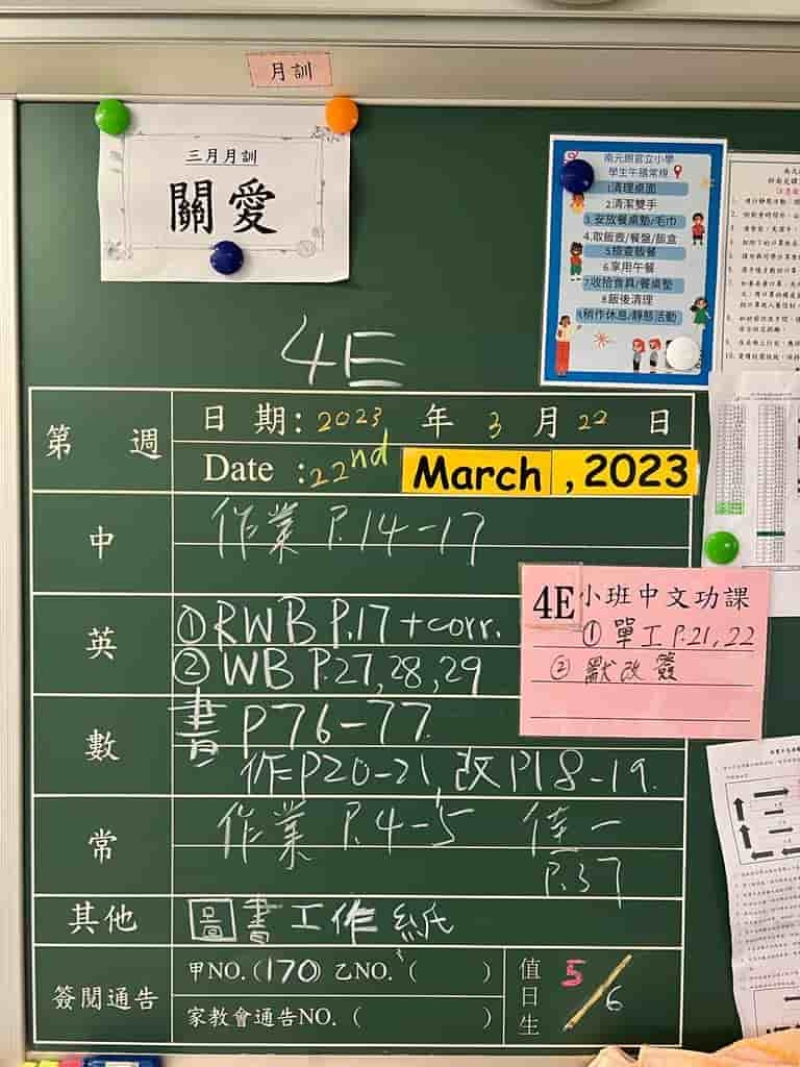 月訓
三月月訓
關愛
南元朗官立小學
學生午膳常規
1.清理桌面
2.清潔雙手
3.安放餐桌墊/毛巾
4.取飯壺/餐盤/飯盒
5.檢查飯餐
6.享用午餐
7.收拾食具/餐桌墊
8.飯後清理
9.稍作休息/靜態活動
4E
第 週
日 期: 2023 年 3 月 22 日
Date :22nd March ,2023
中
作業 P.14-17
4E小班中文功課
① 單工 P.21,22
② 默改簽
英
① RWB P.17 + corr.
② WB P.27,28,29
數
書 P76-77
作P20-21,改P18-19.
常
作業 P.4-5
P.37
其他
圖書工作紙
簽閱通告
甲NO.(170) 乙NO.( )
家教會通告NO.( )
值日生
5/6